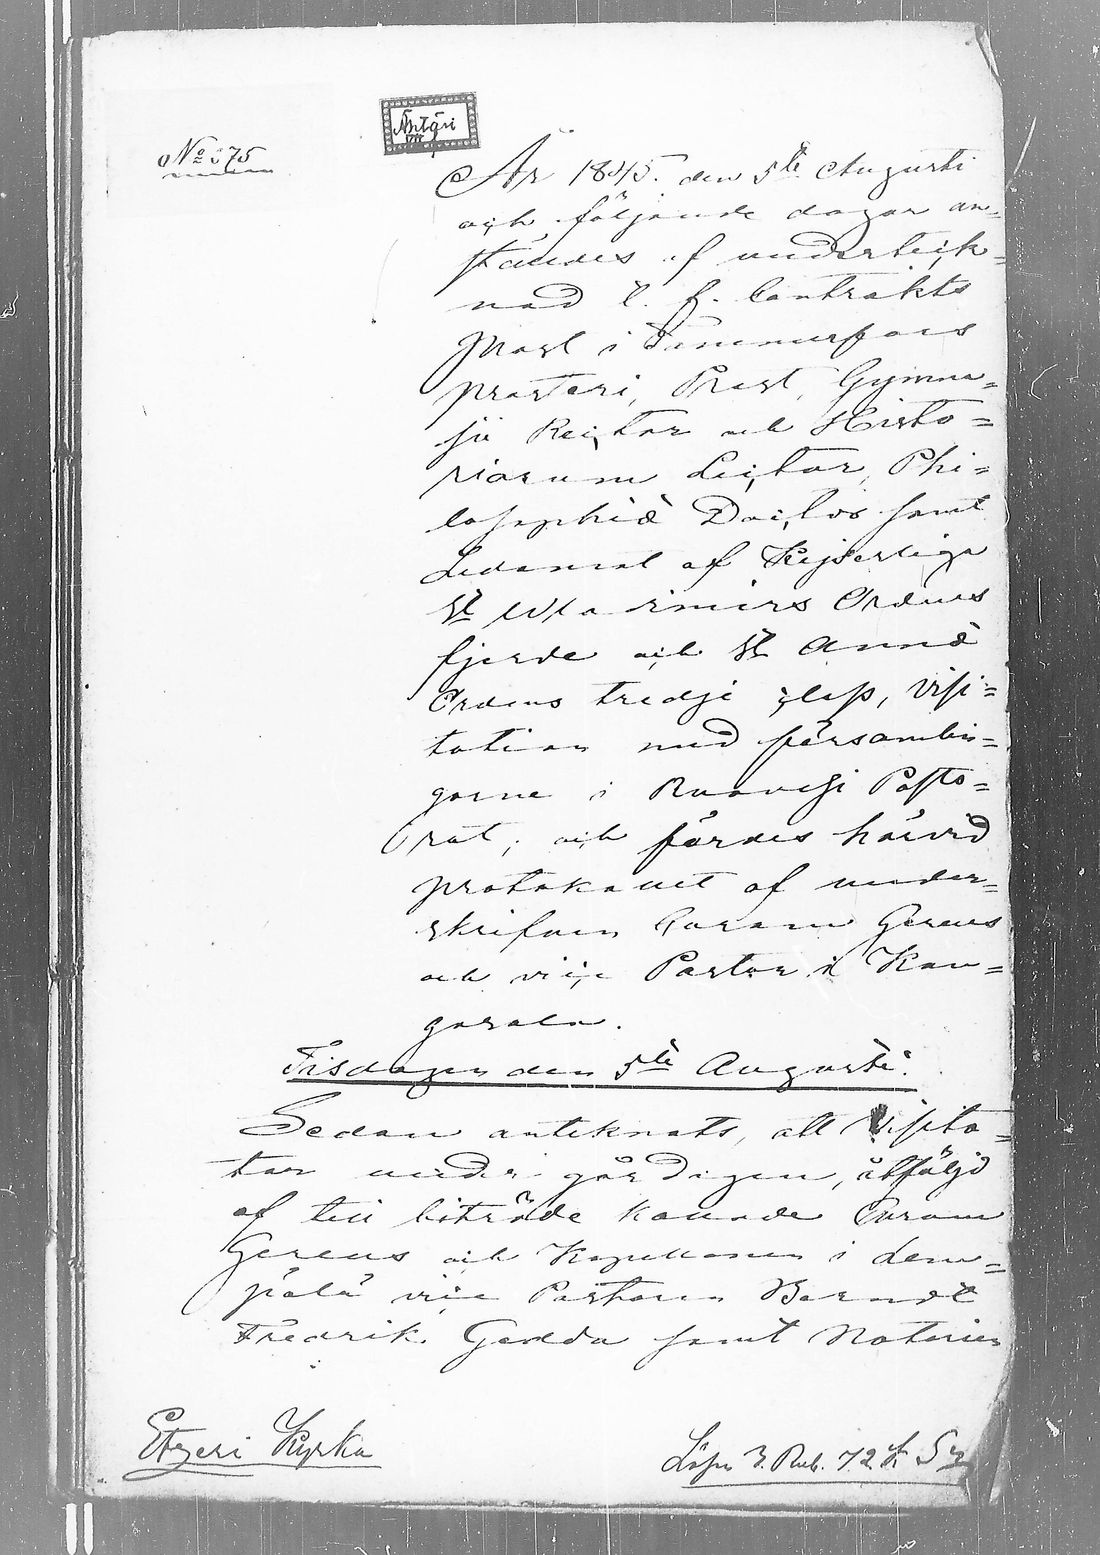 No 375
Ätsäri
År 1845. den 5te Augusti
och följande dagar an=
stäldes af underteck=
nad t. f. Contrakts
Prost i Tammerfors
prosteri, Prost, Gymna=
sii Rector och Histo=
riarum Lector, Phi=
losophiæ Doctor samt
Ledamot af Kejserliga
St Wladimirs Ordens
fjerde och St Annæ
Ordens tredje class, visi=
tation med församlin=
garne i Ruovesi Pasto=
rat, och fördes härvid
protokollet af under=
skrifven Curam Gerens
och vice Pastor i Kan=
gasala.
Tisdagen den 5te Augusti.
Sedan anteknats, att Visita=
tor under gårdagen, åtföljd
af till biträde kallade Curam
Gerens och Kapellanen i Lem=
pälä vice Pastoren Berndt
Fredrik Gadda samt Notarien
Etzeri Kyrka
Lösen 3. Rub. 72 k Sr